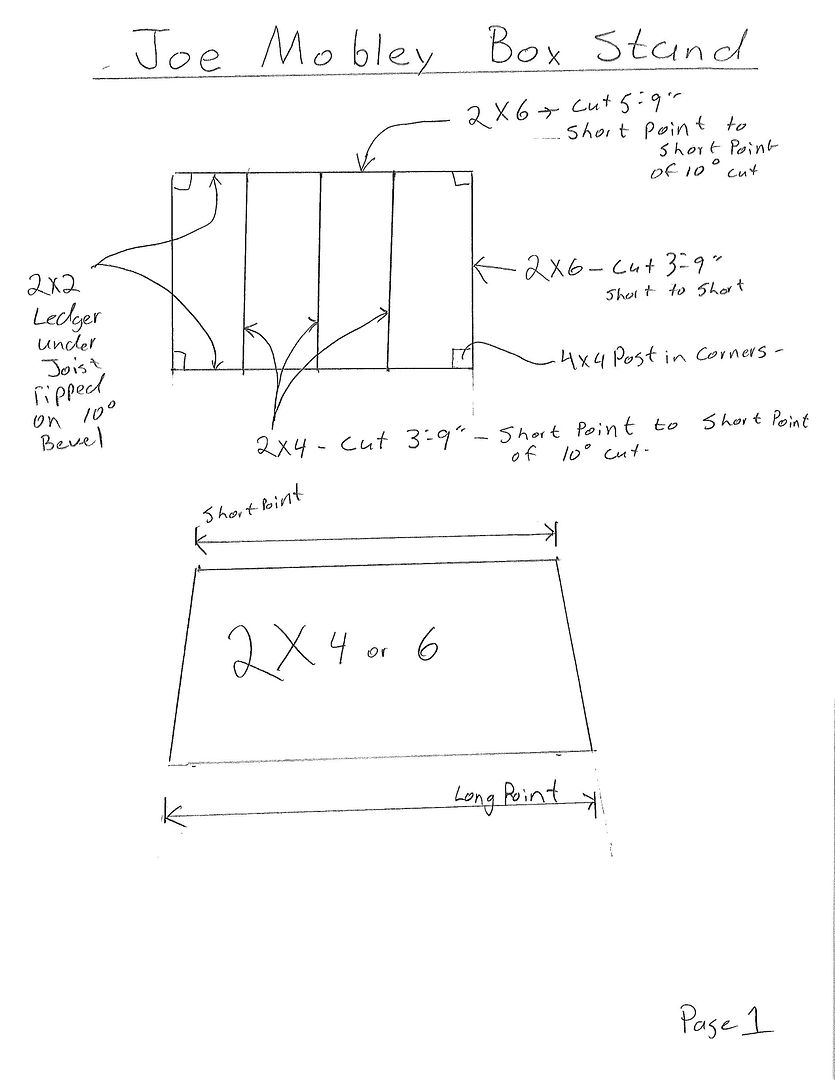 Joe Mobley Box Stand
2X6 → Cut 5-9"
Short Point to
Short Point
of 10° cut
2X6 - Cut 3-9"
Short to Short
4x4 Post in Corners -
2X2
Ledger
under
Joist
ripped
on 10°
Bevel
2X4 - Cut 3-9" - Short Point to Short Point
of 10° cut.
Short Point
2X4 or 6
Long Point
Page 1